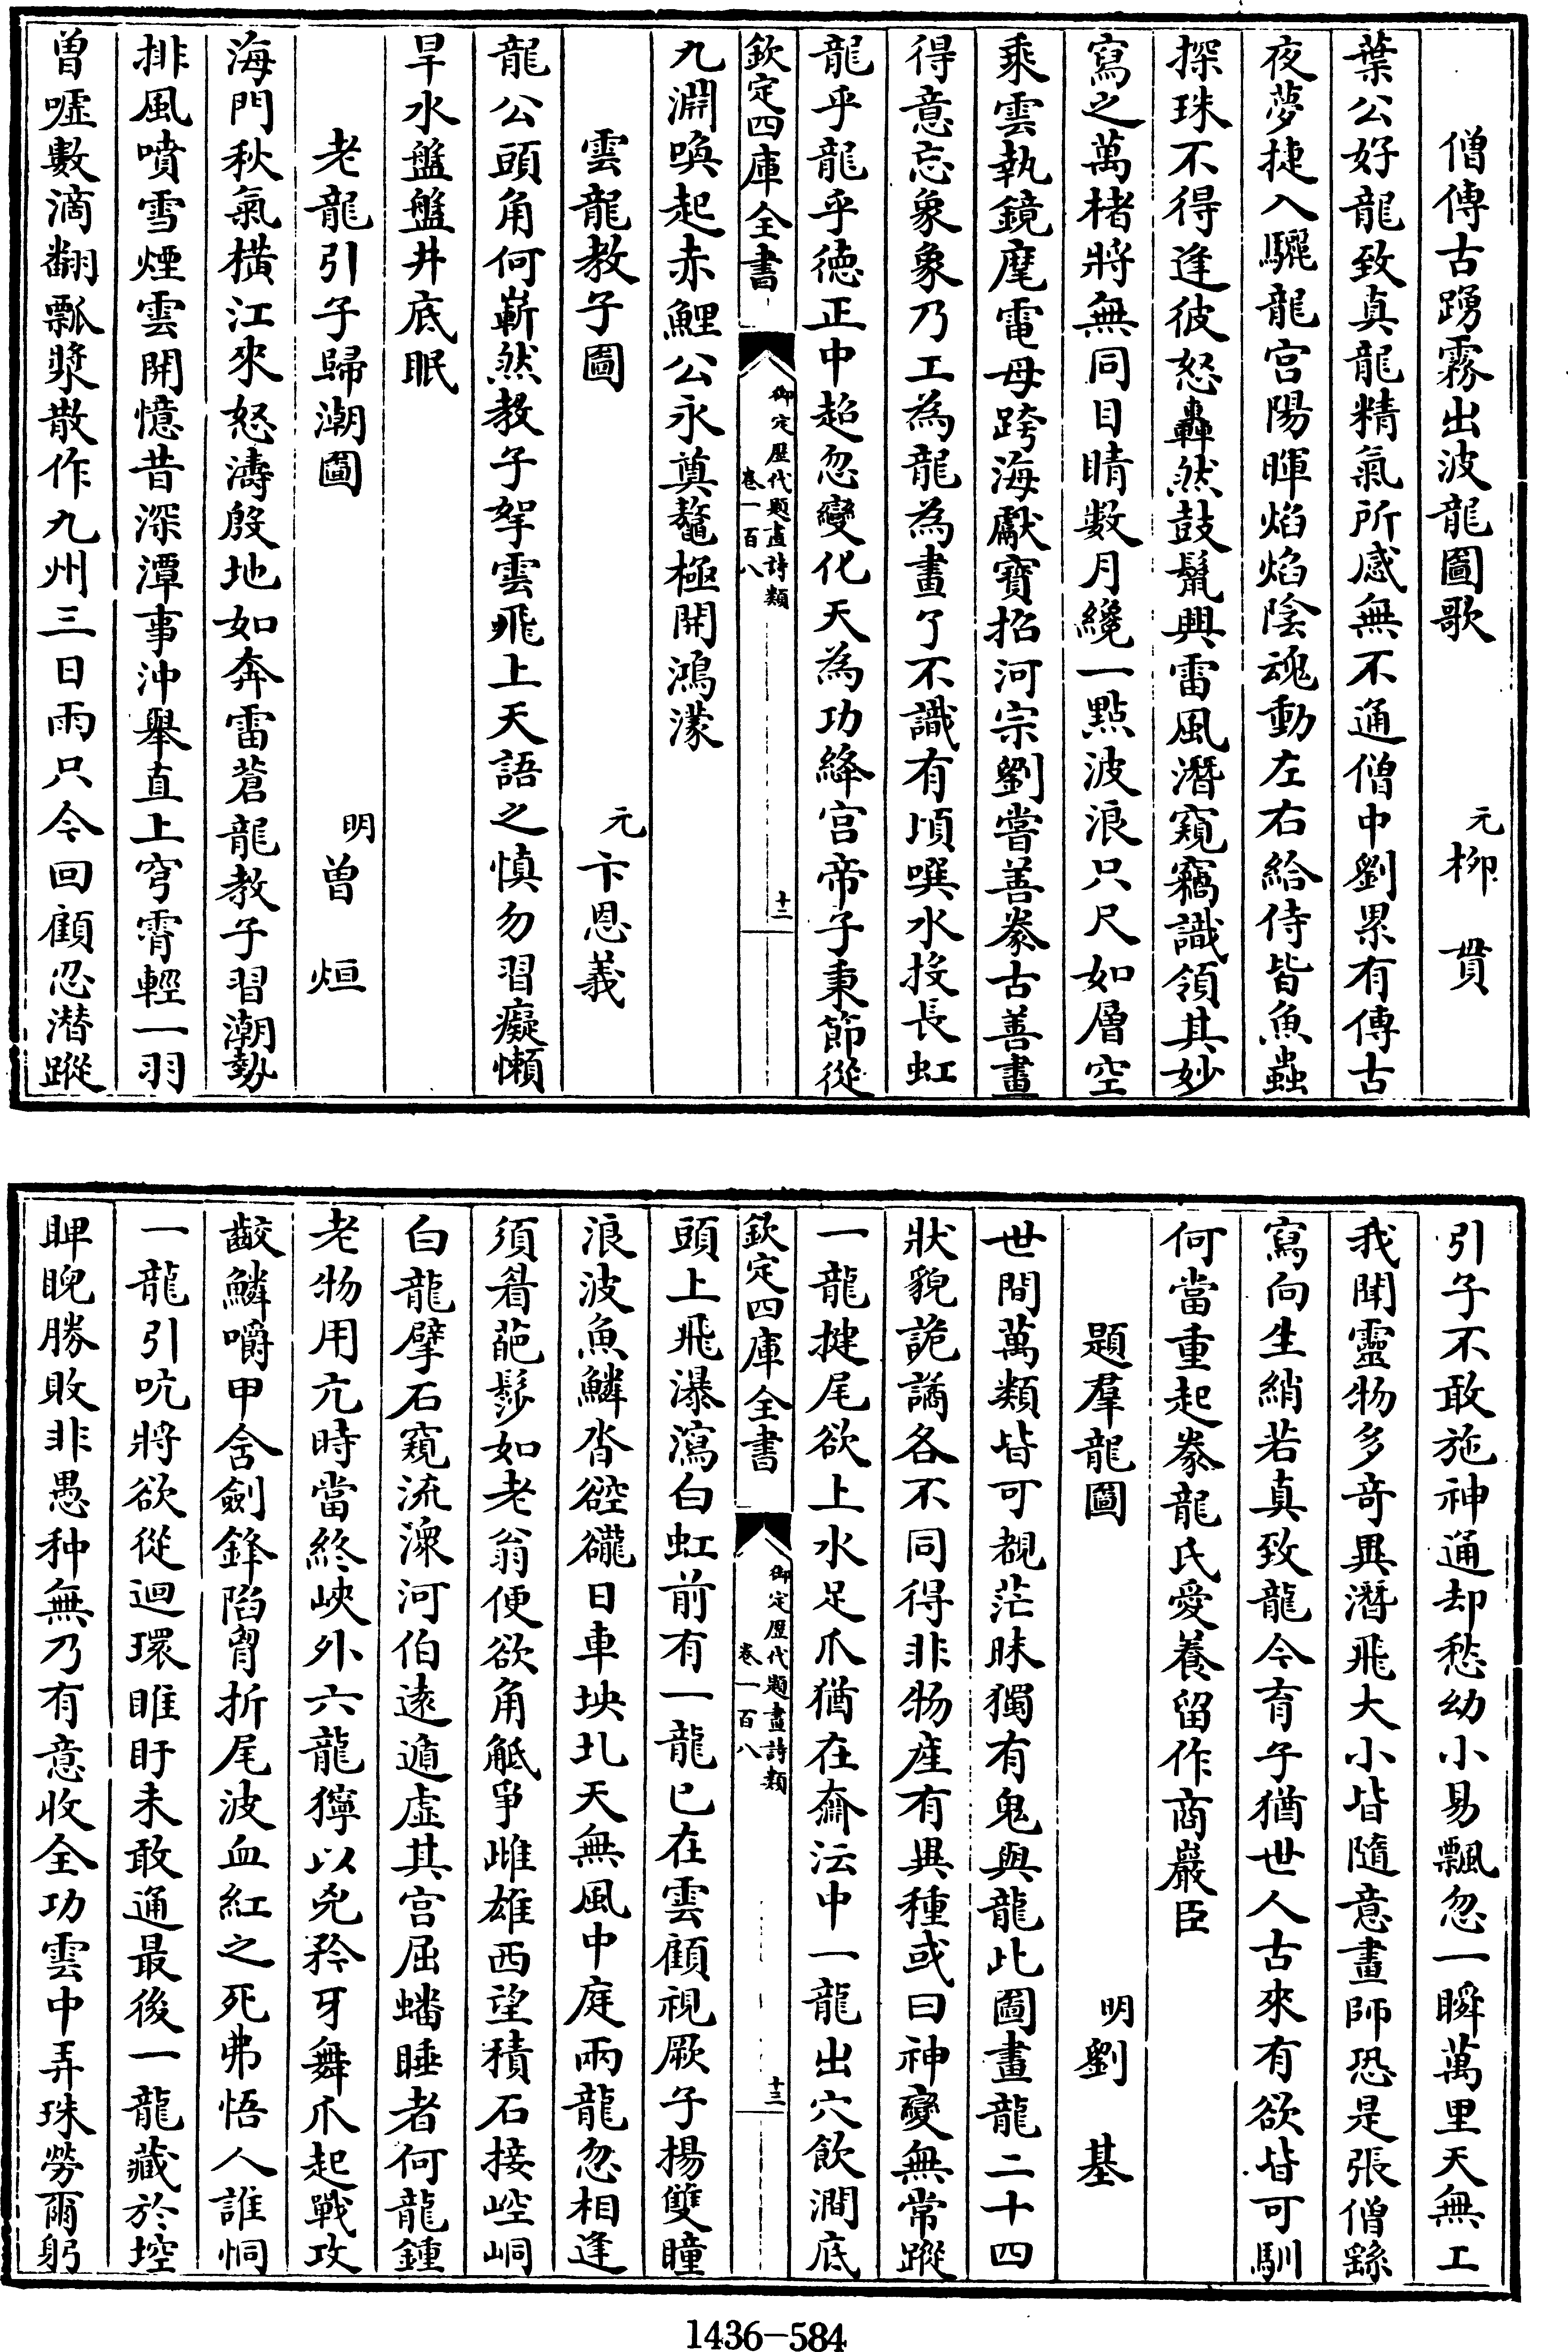 僧傳古踴霧出波龍圖歌　元柳貫
葉公好龍致真龍精氣所感無不通僧中劉累有傳古
夜夢捷入驪龍宫陽暉焰焰陰魂動左右給侍皆魚蟲
探珠不得逢彼怒轟然鼓鬣興雷風潛窺竊識領其妙
寫之萬楮將無同目睛數月纔一點波浪只尺如層空
乘雲執鏡麾電母跨海獻寶招河宗劉嘗善豢古善畫
得意忘象象乃工為龍為畫了不識有頃噀水投長虹
龍乎龍乎徳正中超忽變化天為功絳宫帝子秉節從
欽定四庫全書　御定歷代題畫詩類　卷一百八　十二
九淵喚起赤鯉公永奠鼇極開鴻濛
雲龍教子圖　元卞思義
龍公頭角何嶄然教子拏雲飛上天語之慎勿習癡懶
旱水盤盤井底眠
老龍引子歸潮圖　明曽烜
海門秋氣橫江來怒濤殷地如奔雷蒼龍教子習潮勢
排風噴雪煙雲開憶昔深潭事沖舉直上穹霄輕一羽
曽噓數滴翻瓢漿散作九州三日雨只今回顧忍潛蹤
引子不敢施神通却愁幼小易飄忽一瞬萬里天無工
我聞靈物多奇異潛飛大小皆隨意畫師恐是張僧繇
寫向生綃若真致龍今有子猶世人古來有欲皆可馴
何當重起豢龍氏愛養留作商巖臣
題羣龍圖　明劉基
世間萬類皆可覩茫昧獨有鬼與龍此圖畫龍二十四
狀貌詭譎各不同得非物産有異種或曰神變無常蹤
一龍揵尾欲上水足爪猶在㶜沄中一龍出穴飲澗底
欽定四庫全書　御定歷代題畫詩類　卷一百八　十三
頭上飛瀑瀉白虹前有一龍已在雲顧視厥子揚雙瞳
浪波魚鱗沓硿礲日車坱圠天無風中庭兩龍忽相逢
須着葩髿如老翁便欲角觝爭雌雄西望積石接崆峒
白龍擘石窺流潀河伯逺遁虛其宫屈蟠睡者何龍鍾
老物用亢時當終峽外六龍獰以兇矜牙舞爪起戰攻
齩鱗嚼甲舍劍鋒陷胷折尾波血紅之死弗悟人誰恫
一龍引吭將欲從迴環睢盱未敢通最後一龍藏於埪
睥睨勝敗非愚种無乃有意收全功雲中弄珠勞爾躬
1436-584